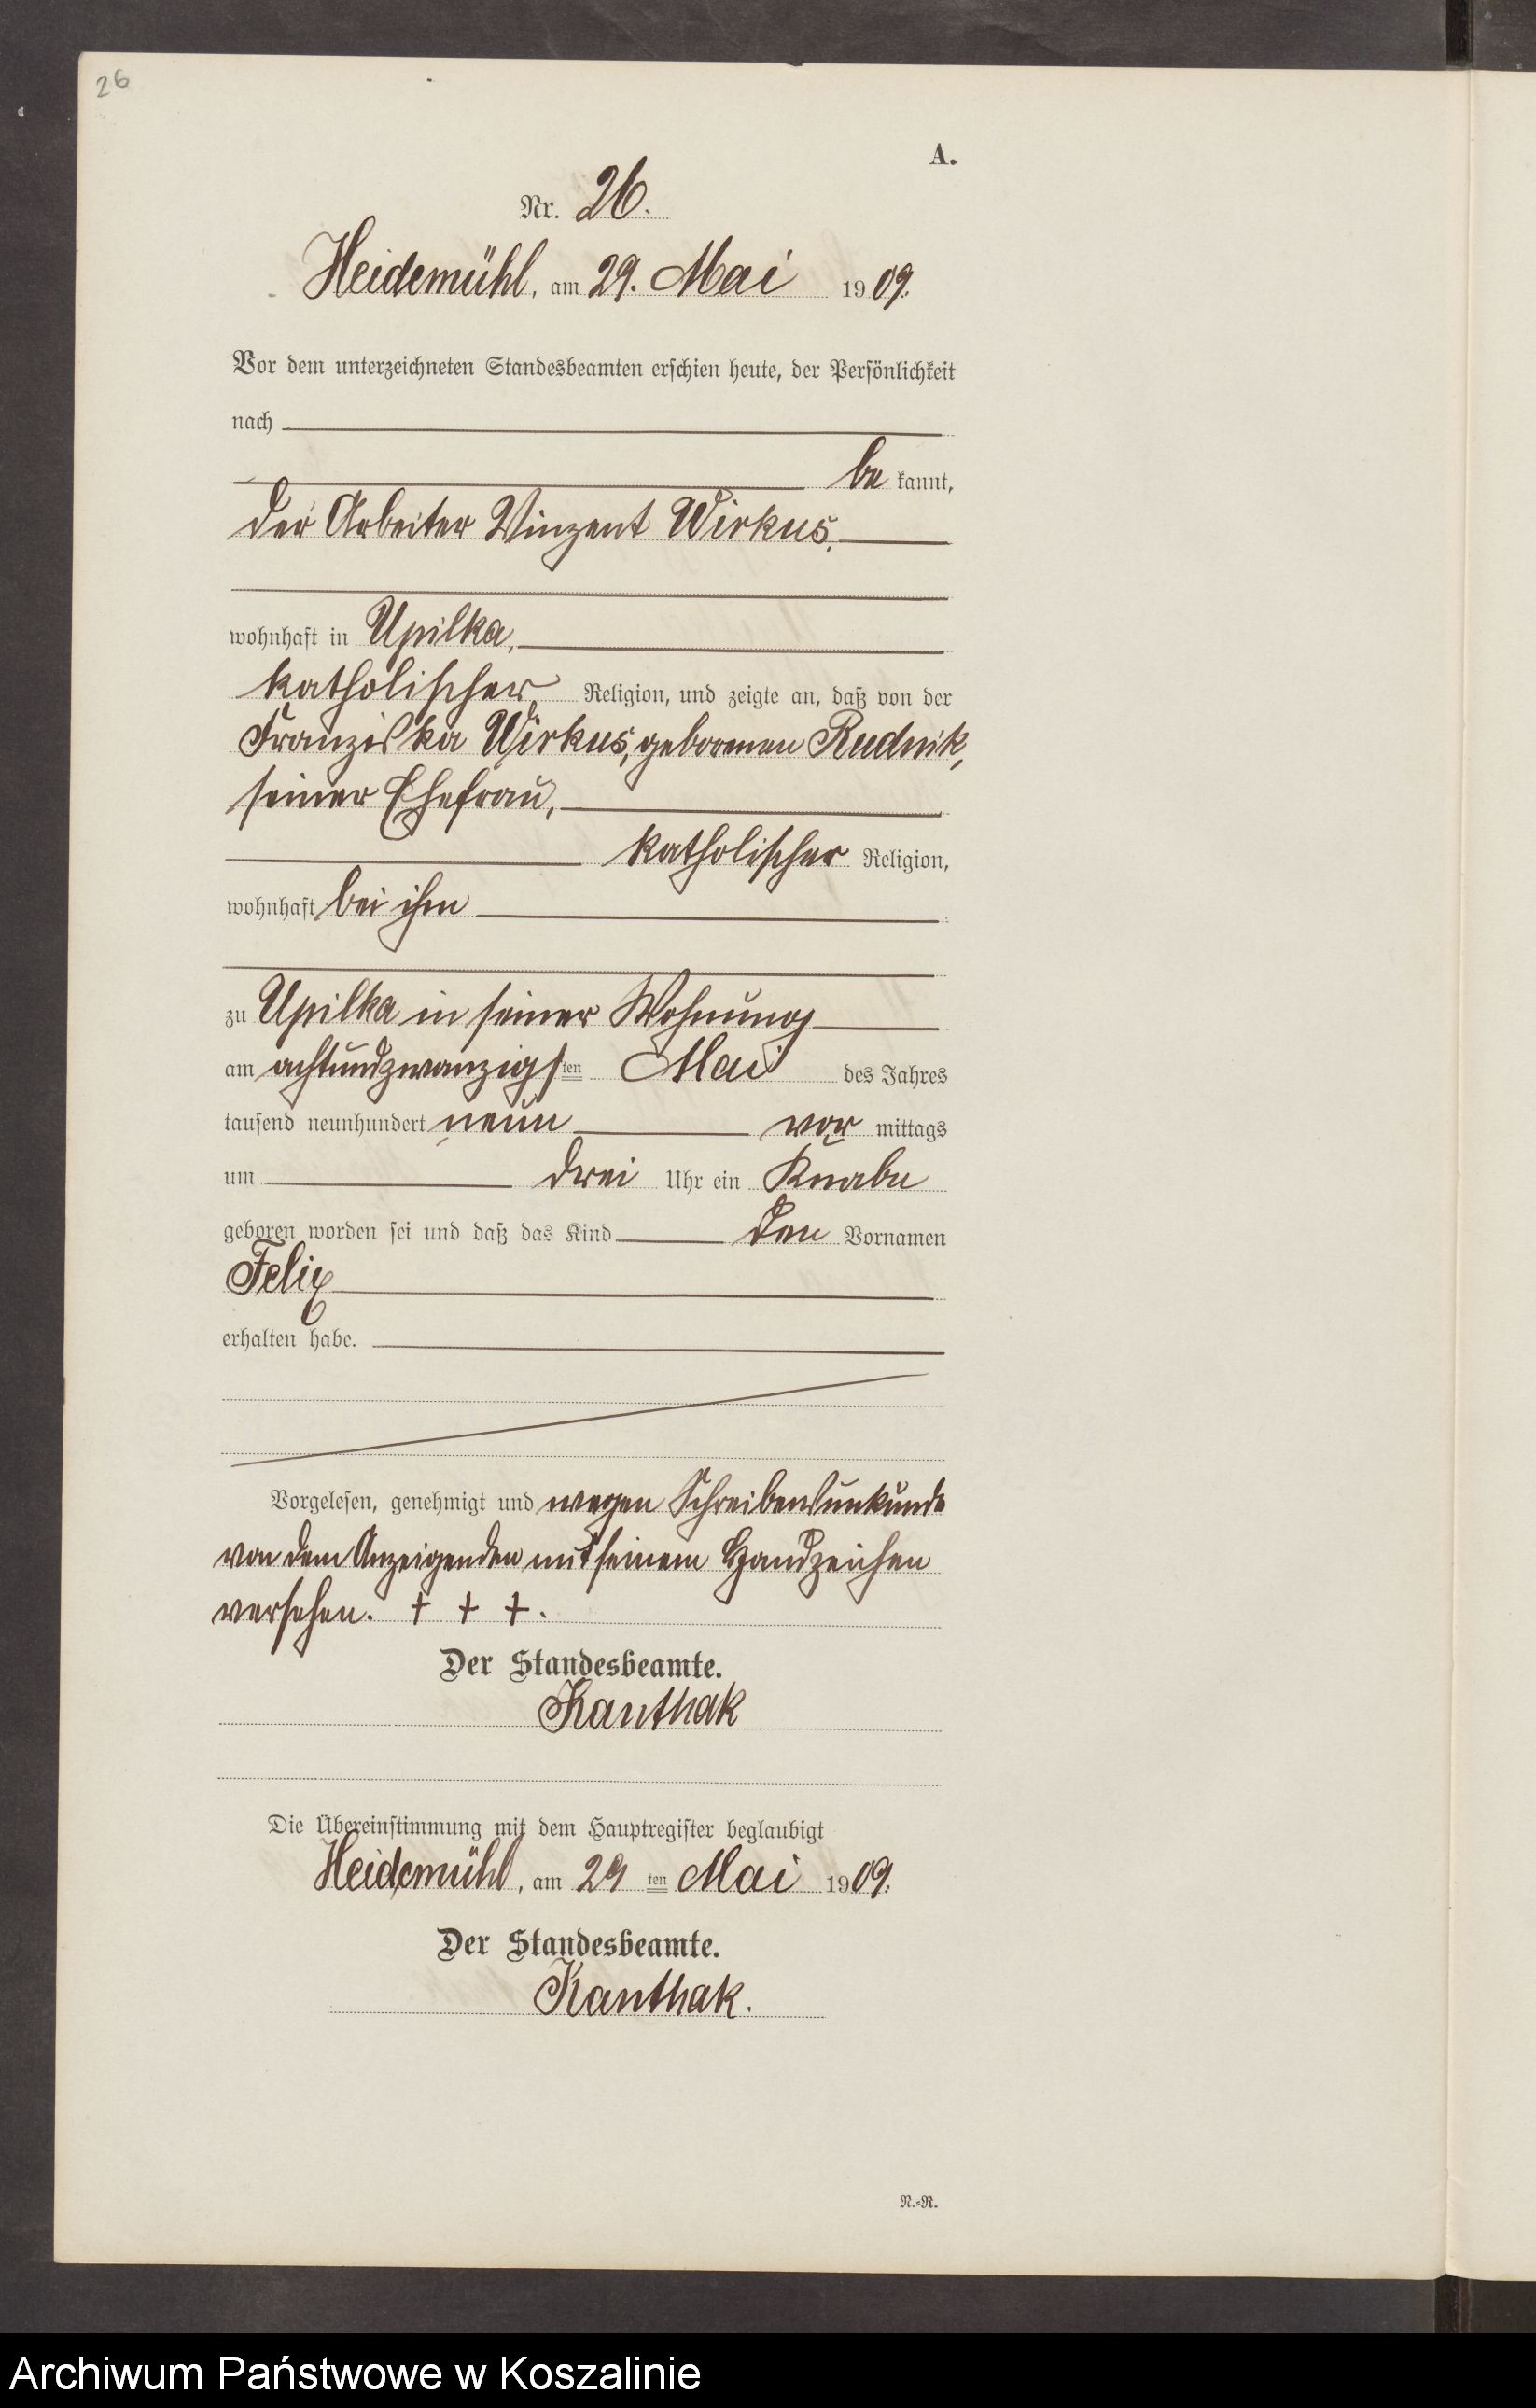 26
A.
Nr. 26.
Heidemühl, am 29. Mai 1909.
Vor dem unterzeichneten Standesbeamten erschien heute, der Persönlichkeit
nach
be kannt,
der Arbeiter Vinzent Wirkus,
wohnhaft in Upilka,
katholischer Religion, und zeigte an, daß von der
Franziska Wirkus, geborenen Rudnik,
seiner Ehefrau,
katholischer Religion,
wohnhaft bei ihm
zu Upilka in seiner Wohnung
am achtundzwanzigsten Mai des Jahres
tausend neunhundert neun vor mittags
um drei Uhr ein Knabe
geboren worden sei und daß das Kind den Vornamen
Felix
erhalten habe.
Vorgelesen, genehmigt und wegen Schreibensunkunde
von dem Anzeigenden mit seinem Handzeichen
versehen. + + +.
Der Standesbeamte.
Kanthak
Die Übereinstimmung mit dem Hauptregister beglaubigt
Heidemühl, am 29 ten Mai 1909.
Der Standesbeamte.
Kanthak.
N.=R.
Archiwum Państwowe w Koszalinie